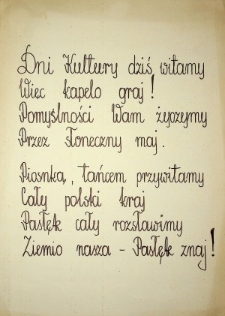 Dni Kultury dziś witamy
Więc kapelo graj!
Pomyślności Wam życzymy
Przez słoneczny maj.
Piosnką, tańcem przywitamy
Cały polski kraj
Pasłęk cały rozsławimy
Ziemio nasza - Pasłęk znaj!